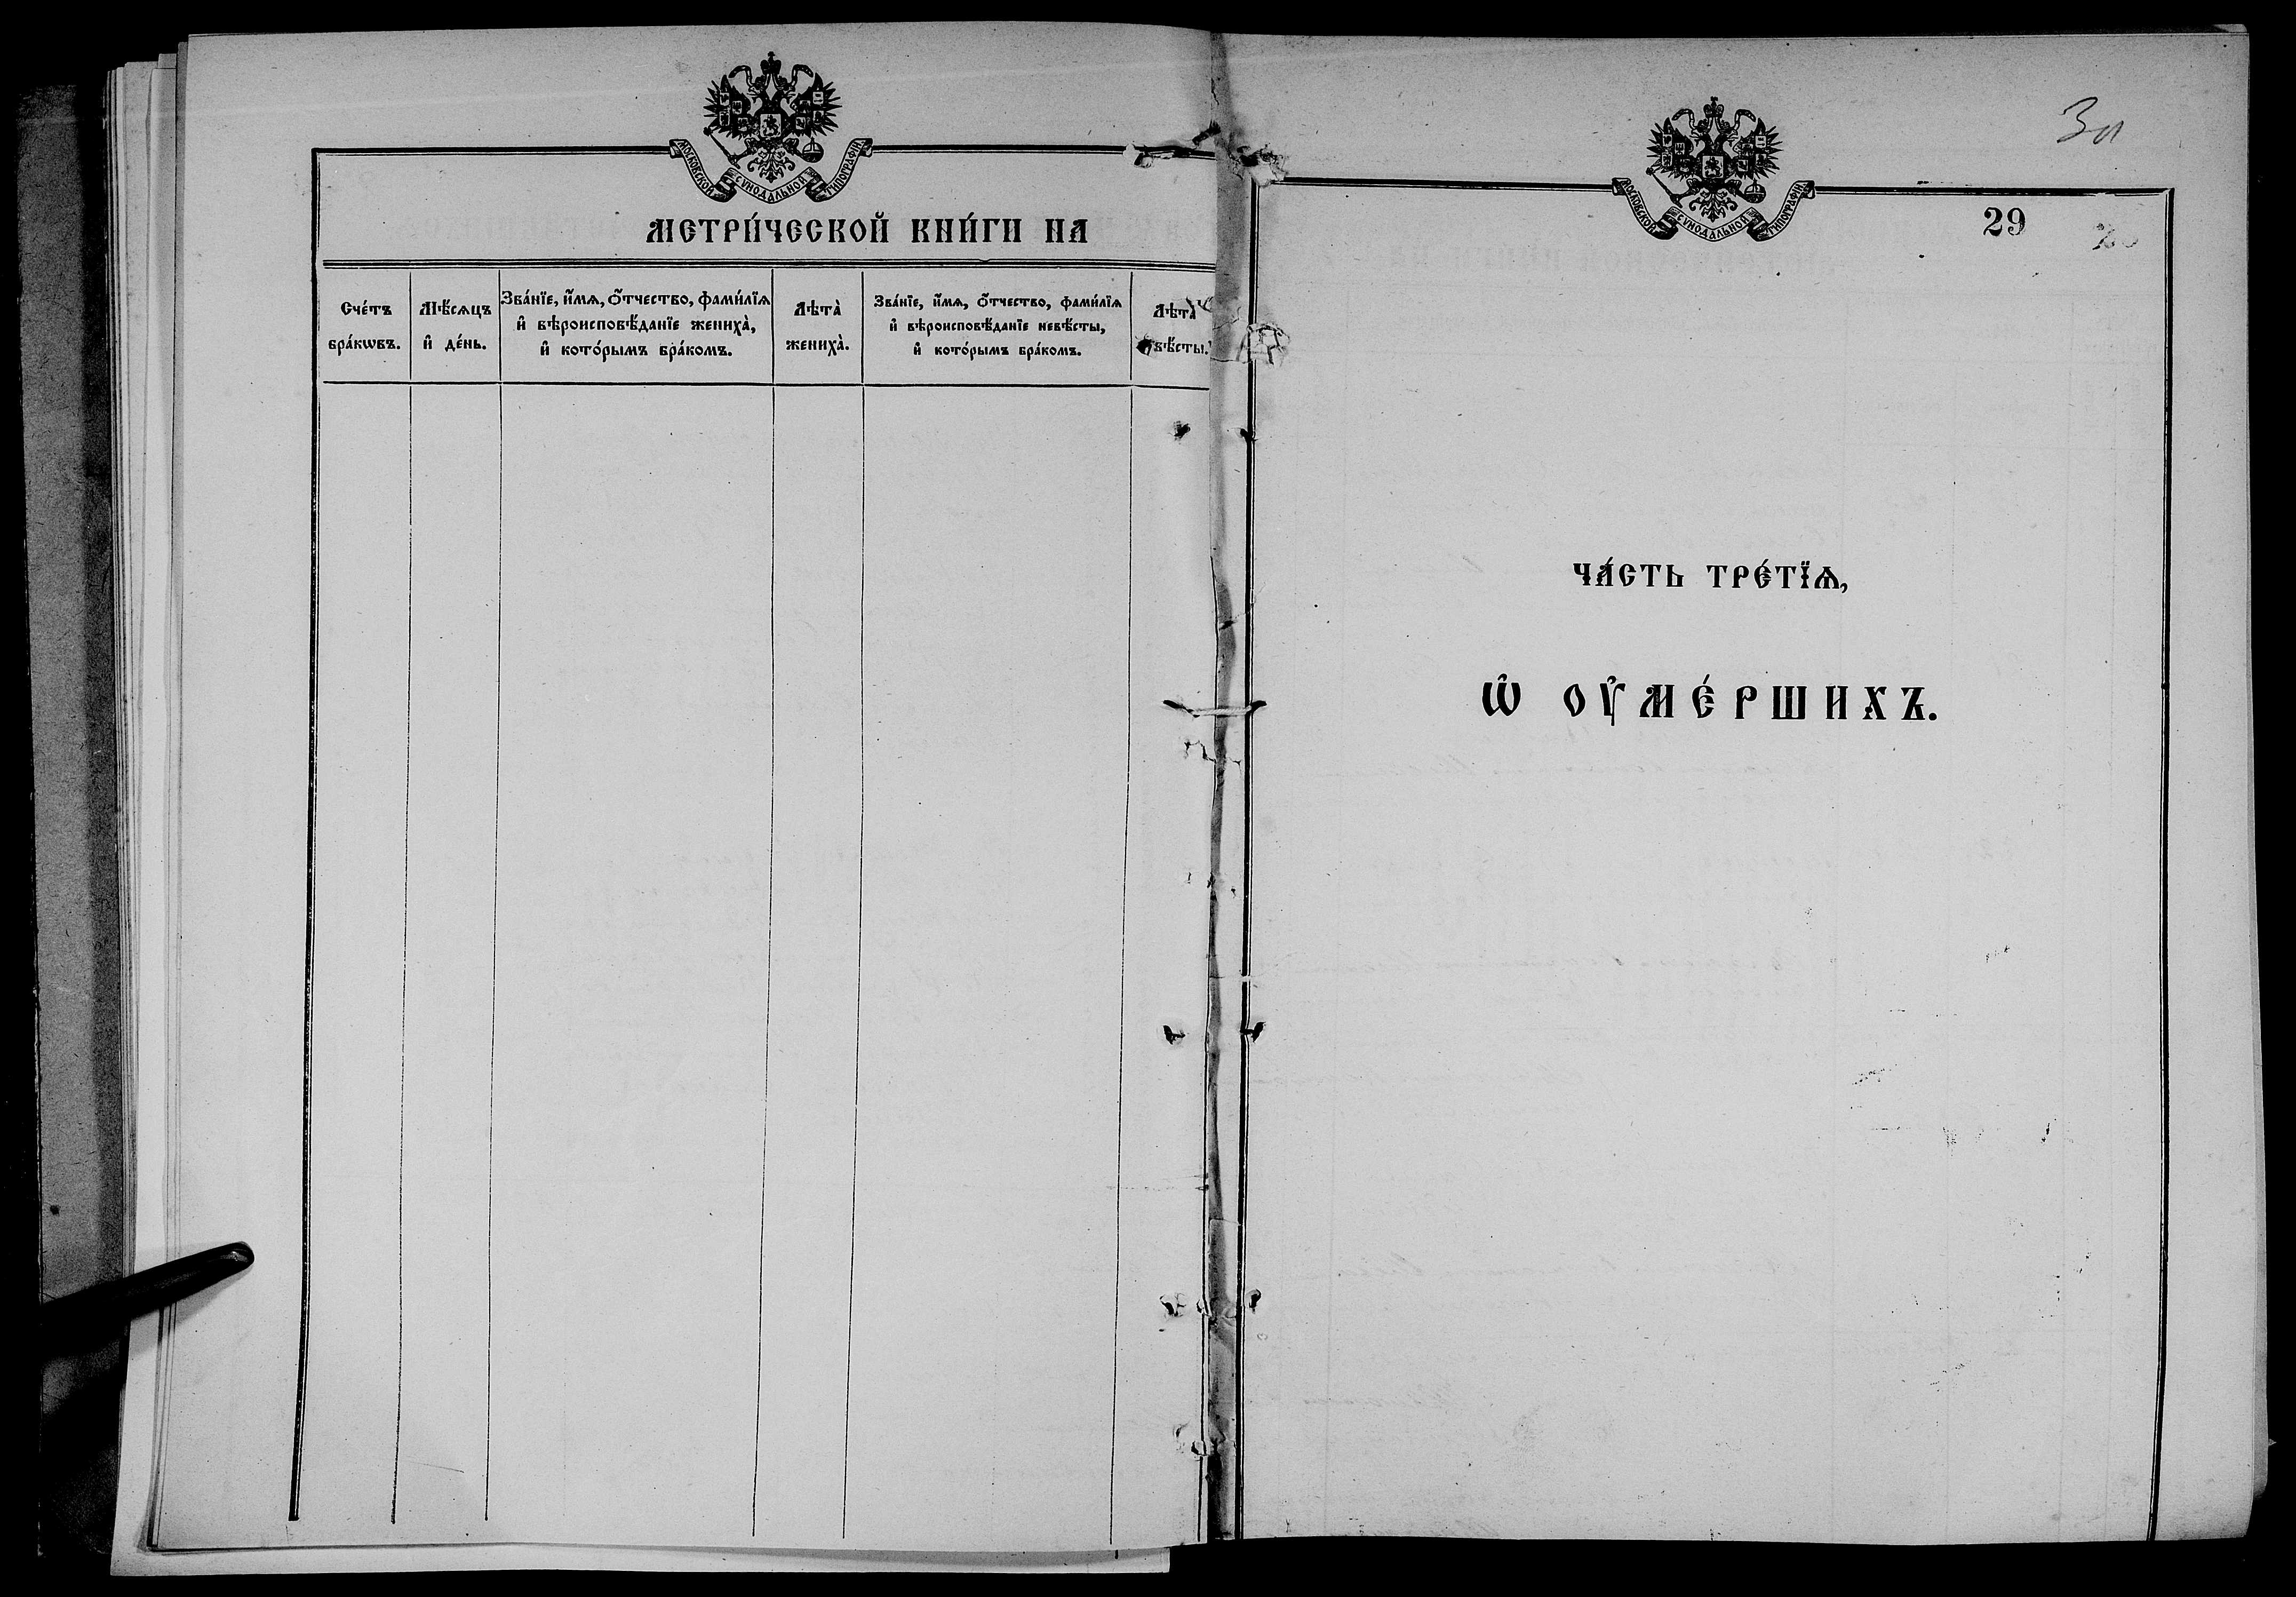 МОСКОВСКОЙ СѴНОДАЛЬНОЙ ТИПОГРАФІИ
МЕТРИ́ЧЕСКОЙ КНИ́ГИ НА
Сче́тъ
бра́кѡвъ.
Мѣ́сѧцъ
и҆ де́нь.
Зва́нїе, и҆́мѧ, ѻ҆́тчество, фами́лїѧ
и҆ вѣроисповѣ́данїе жениха̀,
и҆ кото́рымъ бра́комъ.
Лѣта̀
жениха̀.
Зва́нїе, и҆́мѧ, ѻ҆́тчество, фами́лїѧ
и҆ вѣроисповѣ́данїе невѣ́сты,
и҆ кото́рымъ бра́комъ.
Лѣта̀
вѣ́сты.
МОСКОВСКОЙ СѴНОДАЛЬНОЙ ТИПОГРАФІИ
29
ЧА́СТЬ ТРЕ́ТЇѦ,
Ѡ҆ ОУ҆МЕ́РШИХЪ.